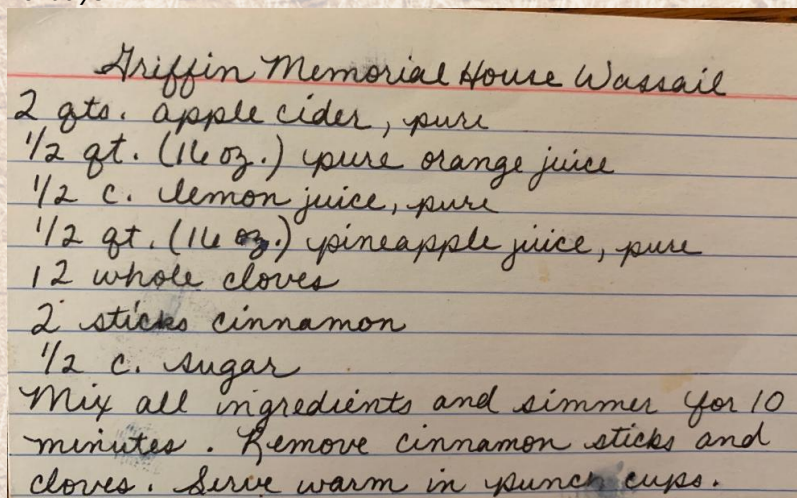 Griffin Memorial House Wassail
2 qts. apple cider, pure
1/2 qt. (16 oz.) pure orange juice
1/2 c. lemon juice, pure
1/2 qt. (16 oz.) pineapple juice, pure
12 whole cloves
2 sticks cinnamon
1/2 c. sugar
Mix all ingredients and simmer for 10
minutes. Remove cinnamon sticks and
cloves. Serve warm in punch cups.